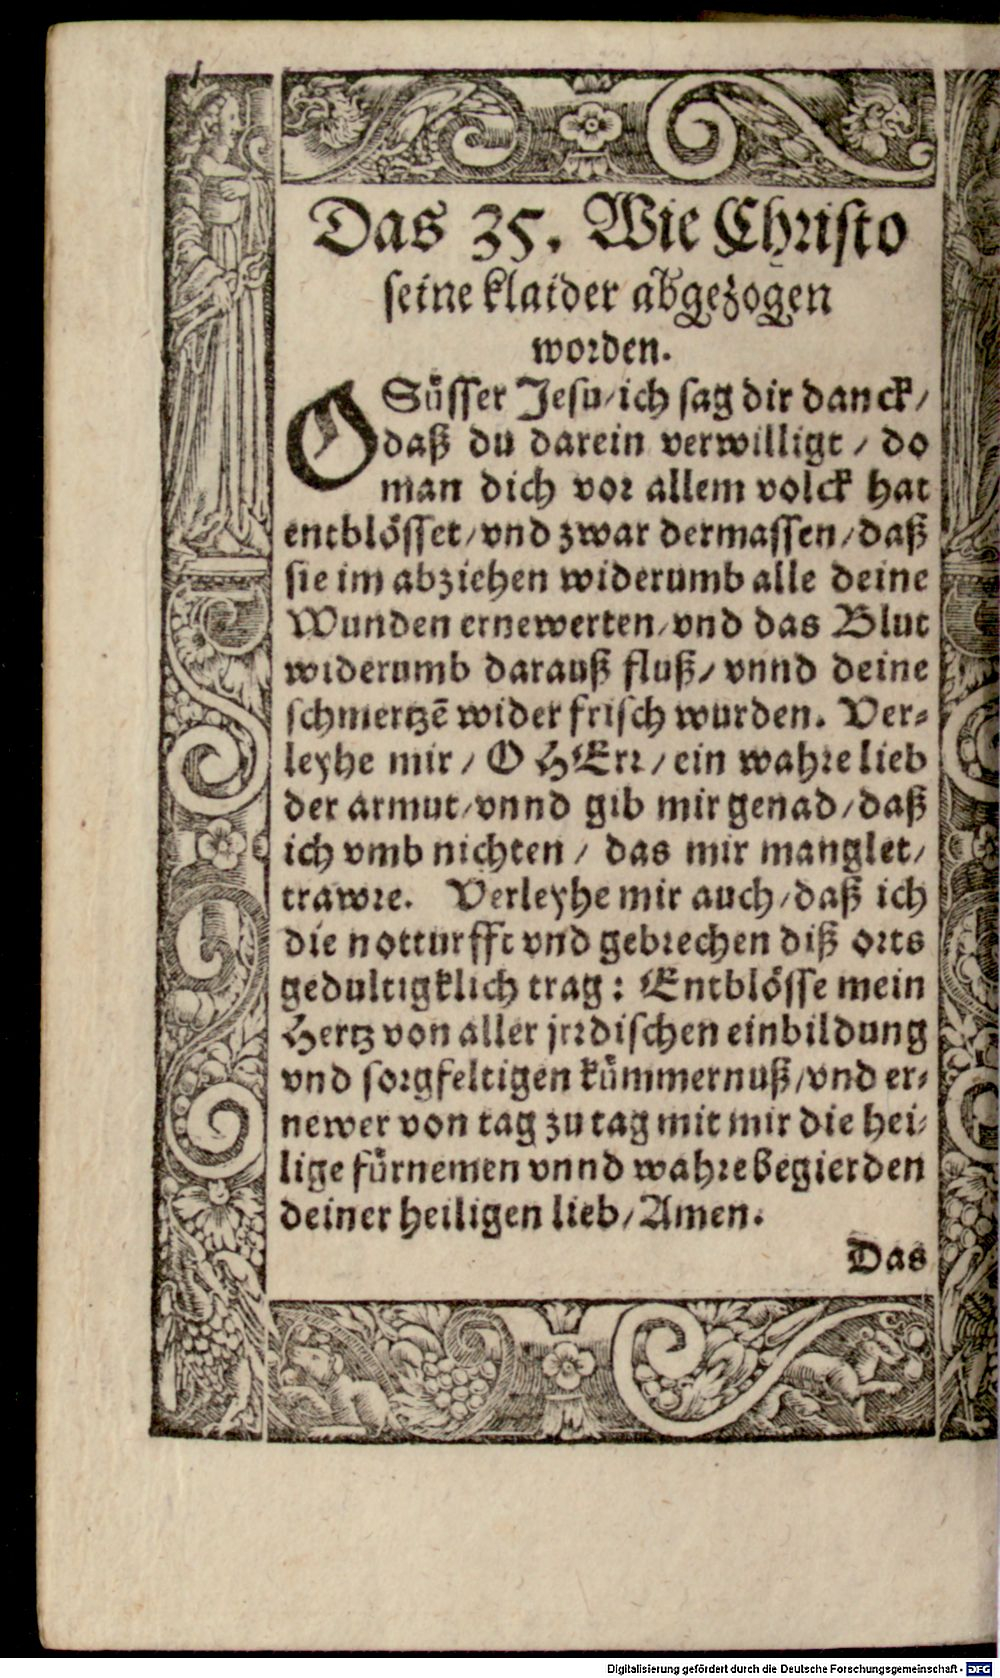 Das 35. Wie Christo
seine klaider abgezogen
worden.
O Süsser Jesu/ ich sag dir danck/
daß du darein verwilligt / do
man dich vor allem volck hat
entblösset/ vnd zwar dermassen/ daß
sie im abziehen widerumb alle deine
Wunden ernewerten/ vnd das Blut
widerumb darauß fluß/ vnnd deine
schmertzē wider frisch wurden. Ver⸗
leyhe mir / O HErr / ein wahre lieb
der armut/ vnnd gib mir genad/ daß
ich vmb nichten / das mir manglet/
trawre. Verleyhe mir auch/ daß ich
die notturfft vnd gebrechen diß orts
gedultigklich trag: Entblösse mein
Hertz von aller jrrdischen einbildung
vnd sorgfeltigen kümmernuß/ vnd er⸗
newer von tag zu tag mit mir die hei⸗
lige fürnemen vnnd wahre begierden
deiner heiligen lieb/ Amen.
Das
Digitalisierung gefördert durch die Deutsche Forschungsgemeinschaft - DFG